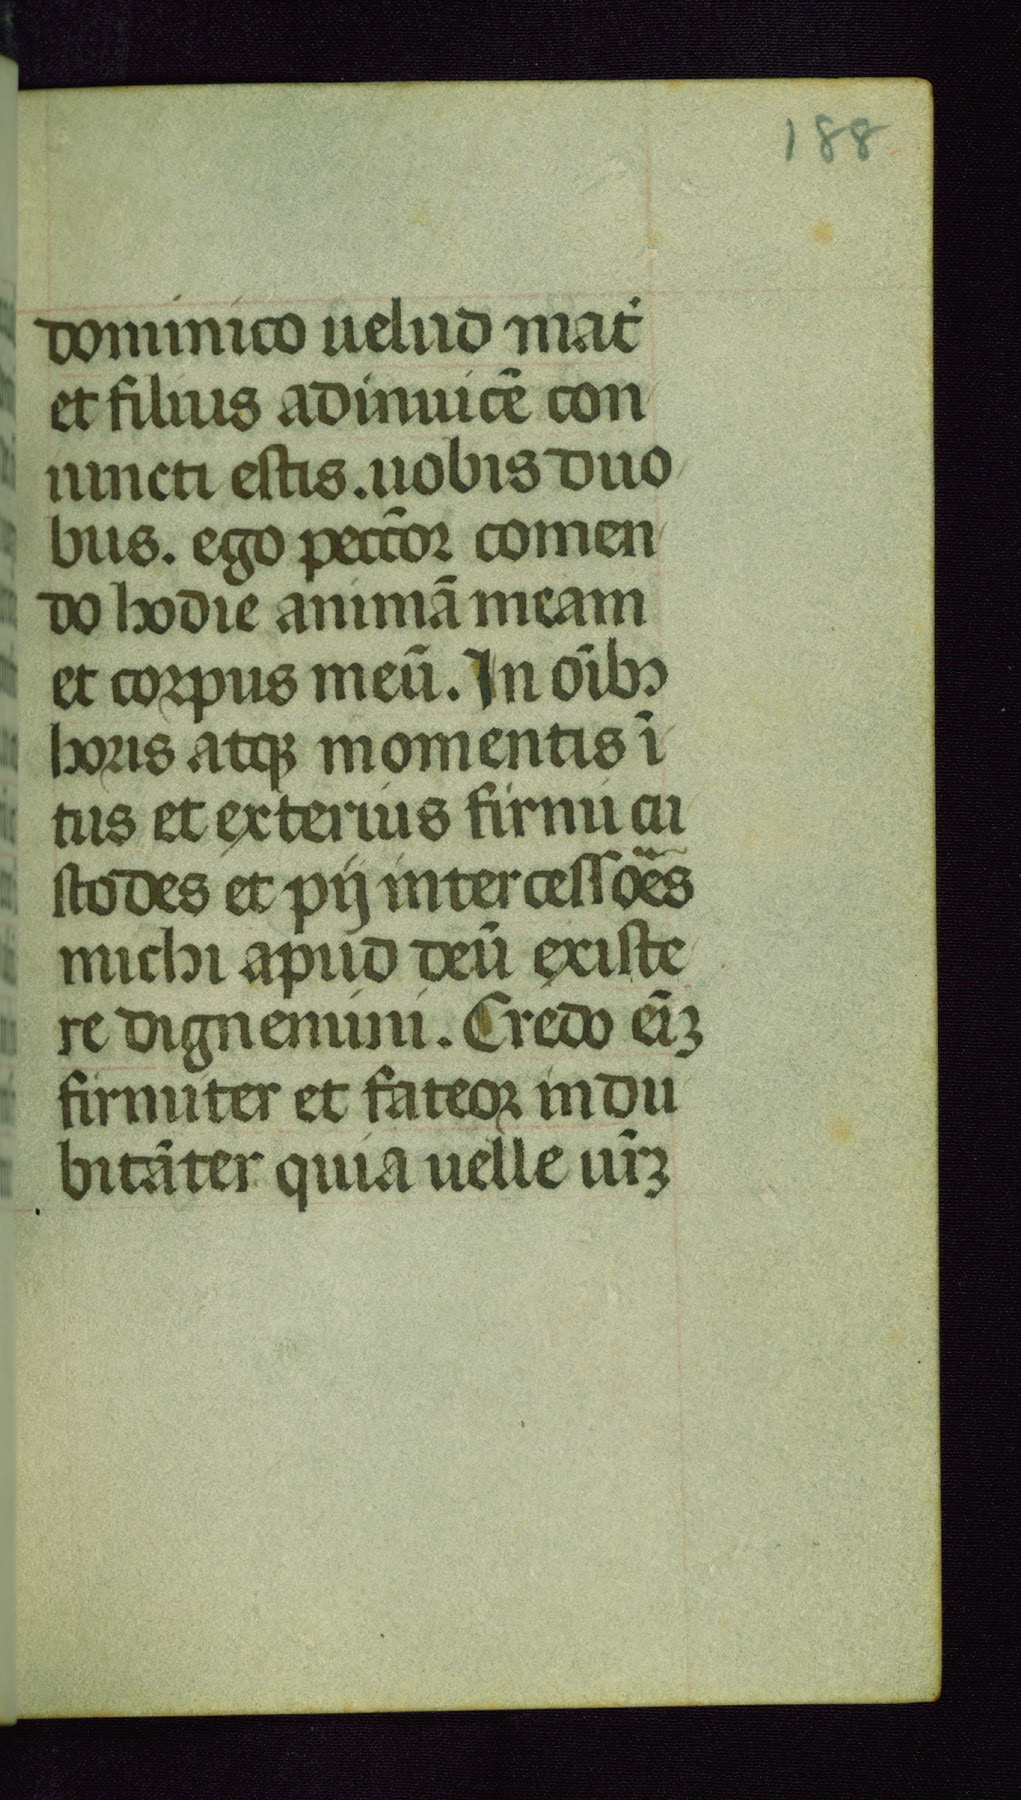 188
dominico uelud mat᷑
et filius adinuicē con
iuncti estis. uobis duo
bus. ego pecc̄or comen
do hodie animā meam
et corpus meū. In oībꝫ
horis atqꝫ momentis ī
tus et exterius firmi cu
stodes et pij intercessoēs
michi apud deū existe
re dignemini. Credo eīꝫ
firmiter et fateor indu
bitāter quia uelle ur̄ꝫ